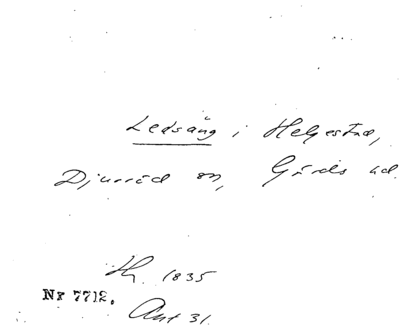 Ledsäng i Helgestad,
Djurröd sn, Gärds hd.
Th. 1835
Nr 7712.
Ant 31.